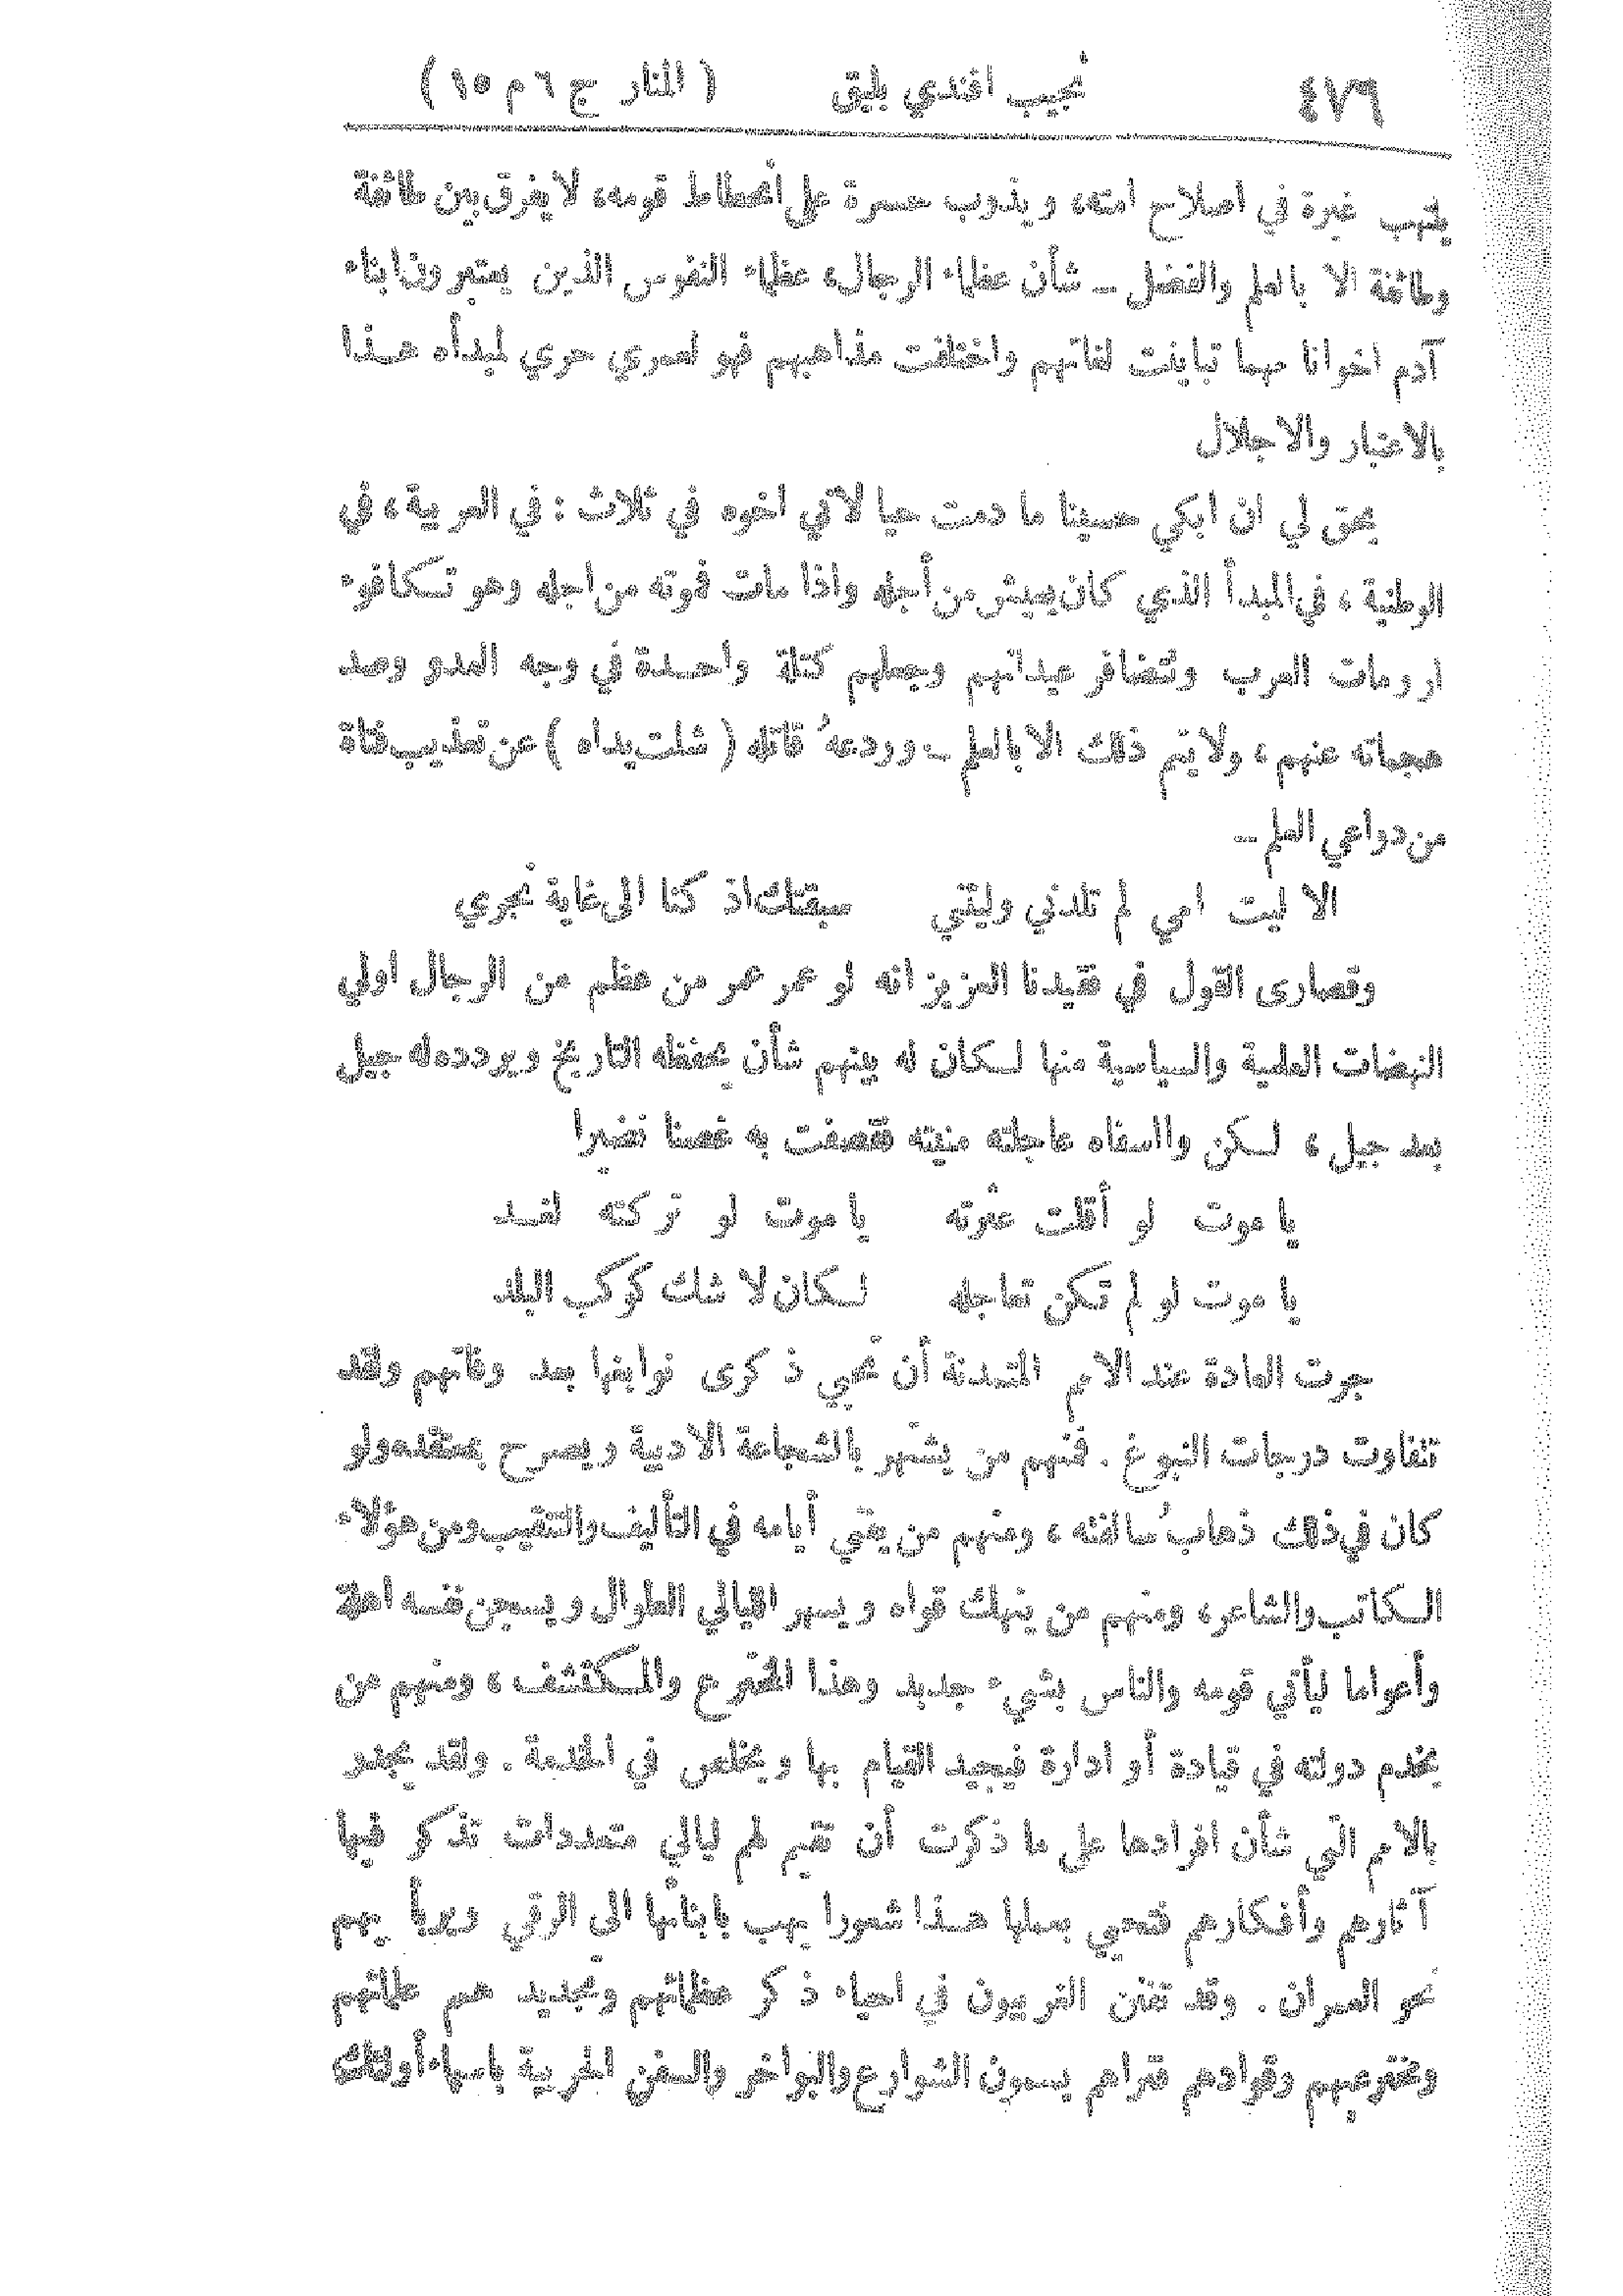 ٤٧٦ نجيب افندي بليق ( المنار ج ٦ م ١٥ )
يلتهب غيرة في اصلاح امته، ويذوب حسرة على أنحطاط قومه، لا يفرق بين طائفة
وطائفة الا بالعلم والفضل ــ شأن عظماء الرجال، عظماء النفوس الذين يعتبرون ابناء
آدم اخوانا مهما تباينت لغاتهم واختلفت مذاهبهم فهو لعمري حري لمبدأه هـذا
بالاعتبار والاجلال
يحق لي ان ابكي حسينا ما دمت حيا لاني اخوه في ثلاث : في العربية، في
الوطنية ، في المبدأ الذي كان يعيش من أجله واذا مات فموته من اجله وهو تـكافؤ
ارومات العرب وتضافر عيدانهم وجعلهم كتلة واحـدة في وجه العدو وصد
هجماته عنهم ، ولا يتم ذلك الا بالعلم ــ وردعهُ قاتله ( شلت يداه ) عن تعذيب فتاة
من دواعي العلم ــ
الا ليت امي لم تلدني وليتني سبقتك اذ كنا الى غاية نجري
وقصارى القول في فقيدنا العزيز انه لو عمر عمر من عظم من الرجال اولي
النهضات العلمية والسياسية منها لـكان له بينهم شأن يحفظه التاريخ ويردده له جيل
بعد جيل ، لـكن وااسفاه عاجلته منيته فقصفت به غصنا نضيرا
يا موت لو أقلت عثرته يا موت لو تركته لغـد
يا موت لو لم تكن تعاجله لـكان لا شك كوكب البلد
جرت العادة عند الامم المتمدنة أن تحيي ذكرى نوابغها بعد وفاتهم ولقد
تتفاوت درجات النبوغ . فمنهم من يشتهر بالشجاعة الادبية ويصرح بمعتقده ولو
كان في ذلك ذهابُ سالفته ، ومنهم من يقضي أيامه في التأليف والتنقيب ومن هؤلاء
الـكاتب والشاعر، ومنهم من ينهك قواه ويسهر الليالي الطوال ويسجن نفسه اهلة
وأعواما ليأتي قومه والناس بشيء جديد وهذا المخترع والمـكتشف ، ومنهم من
يخدم دولته في قيادة أو ادارة فيجيد القيام بها ويخلص في الخدمة . ولقد يجدر
بالامم التي شأن افرادها على ما ذكرت أن تقيم لهم ليالي متعددات تذكر فيها
آثارهم وأفكارهم فتحيي بعملها هـذا شعورا يهب بابنائها الى الرقي ويربأ بهم
نحو العمران . وقد تفنن الغربيون في احياء ذكر عظمائهم وتجديد همم علمائهم
ومخترعيهم وقوادهم فتراهم يسمون الشوارع والبواخر والسفن الحربية باسماء أولئك